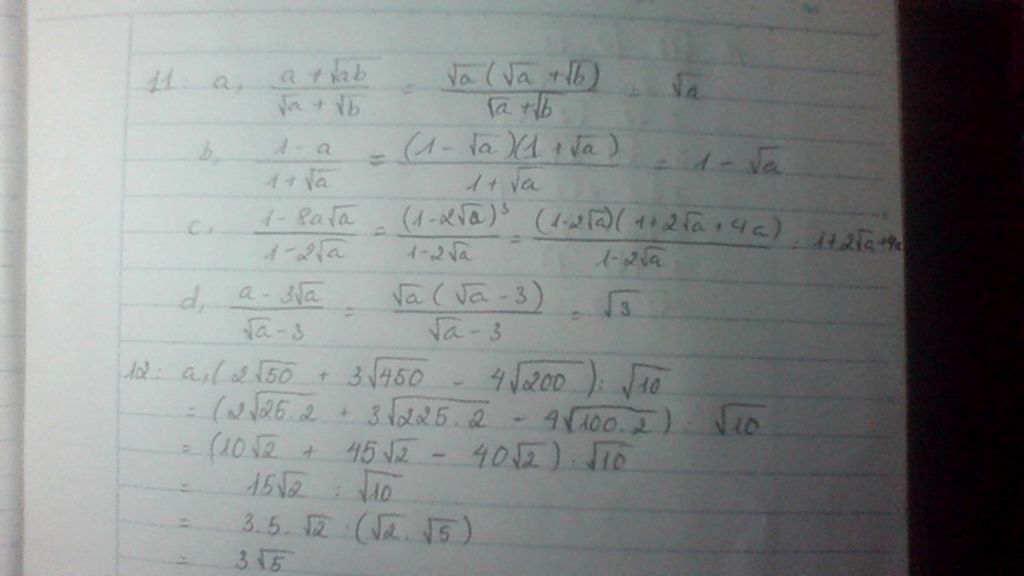 11: a, (a + √ab)/(√a + √b) = √a(√a + √b)/(√a + √b) = √a
b, (1 - a)/(1 + √a) = (1 - √a)(1 + √a)/(1 + √a) = 1 - √a
c, (1 - 8a√a)/(1 - 2√a) = (1 - 2√a)³/(1 - 2√a) = (1 - 2√a)(1 + 2√a + 4a)/(1 - 2√a) = 1 + 2√a + 4a
d, (a - 3√a)/(√a - 3) = √a(√a - 3)/(√a - 3) = √3
12: a, (2√50 + 3√450 - 4√200) : √10
= (2√25.2 + 3√225.2 - 4√100.2) : √10
= (10√2 + 45√2 - 40√2) : √10
= 15√2 : √10
= 3.5.√2 : (√2.√5)
= 3√5